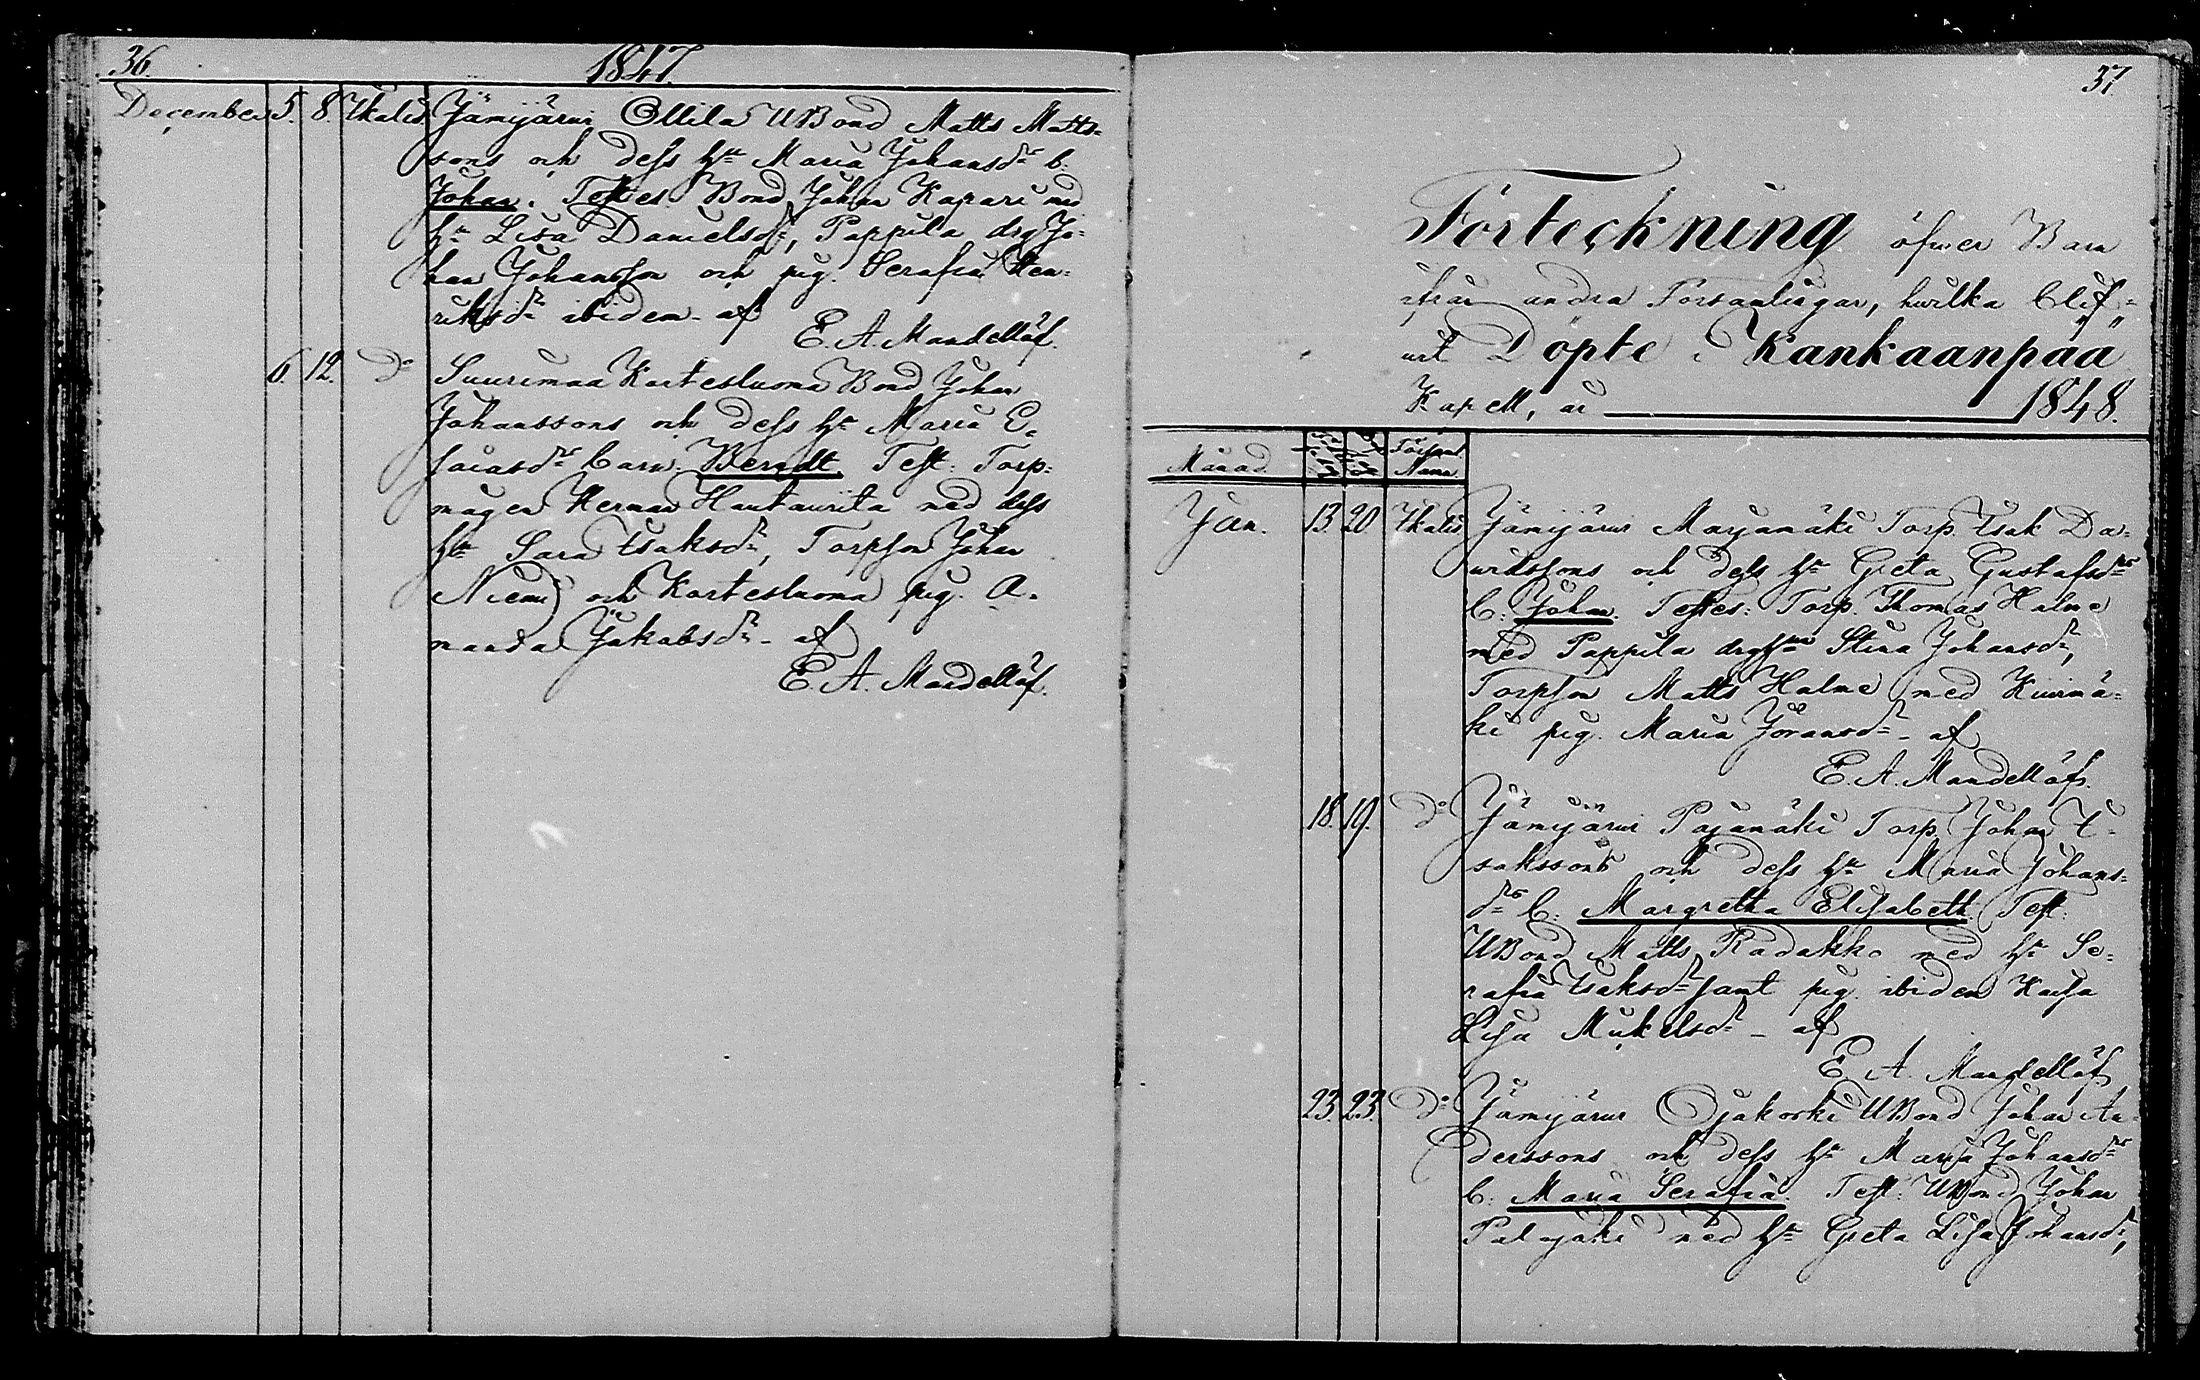 36. 1847.
December 5. 8. Ikalis Jämijärvi Ollila UBond Matts Matts=
sons och dess h:u Maria Johansd:rs b.
Johan. Testes Bond Johan Kapari med
h:u Lisa Danielsd:r, Pappila drg Jo=
han Johansson och pig. Serafia Hen=
riksd:r ibidem - af
E. A. Mandellöf.
6. 12. D:o Suurimaa Kortesluoma Bond Johan
Johanssons och dess h:u Maria E=
saiasd:rs barn. Berndt. Test: Torp=
magen Herman Hautaviita med dess
h:u Sara Isaksd:r, Torpson Johan
Niemi och Kortesluoma pig. A=
manda Jakobsd:r - af
E. A. Mandellöf.
37.
Förteckning öfver Barn
ifrån andra Församlingar, hvilka blif=
vit Döpte i Kankaanpää
Kapell, år 1848.
Månad Förs. Namn.
Jan. 13. 20. Ikalis Jämijärvi Marjamäki Torp. Isak Da=
vidssons och dess h:u Greta Gustafsd:rs
b. Johan. Testes: Torp. Thomas Halme
med Pappila drgh:un Stina Johansd:r,
Torpson Matts Halme med Kuinä=
ki pig. Maria Göransd:r - af
E. A. Mandellöf.
18. 19. D:o Jämijärvi Pajamäki Torp. Johan I=
sakssons och dess h:u Maria Johans=
d:rs b: Margretha Elisabeth. Test:
UBond Matts Radakko med h:u Se=
rafia Isaksd:r samt pig. ibidem Kaisa
Lisa Mickelsd:r - af
E. A. Mandellöf.
23. 23. D:o Jämijärvi Ojakoski UBond Johan An=
derssons och dess h:u Maria Johansd:rs
b: Maria Serafia. Test: UBond Johan
Palojoki med h:u Greta Lisa Johansd:r,